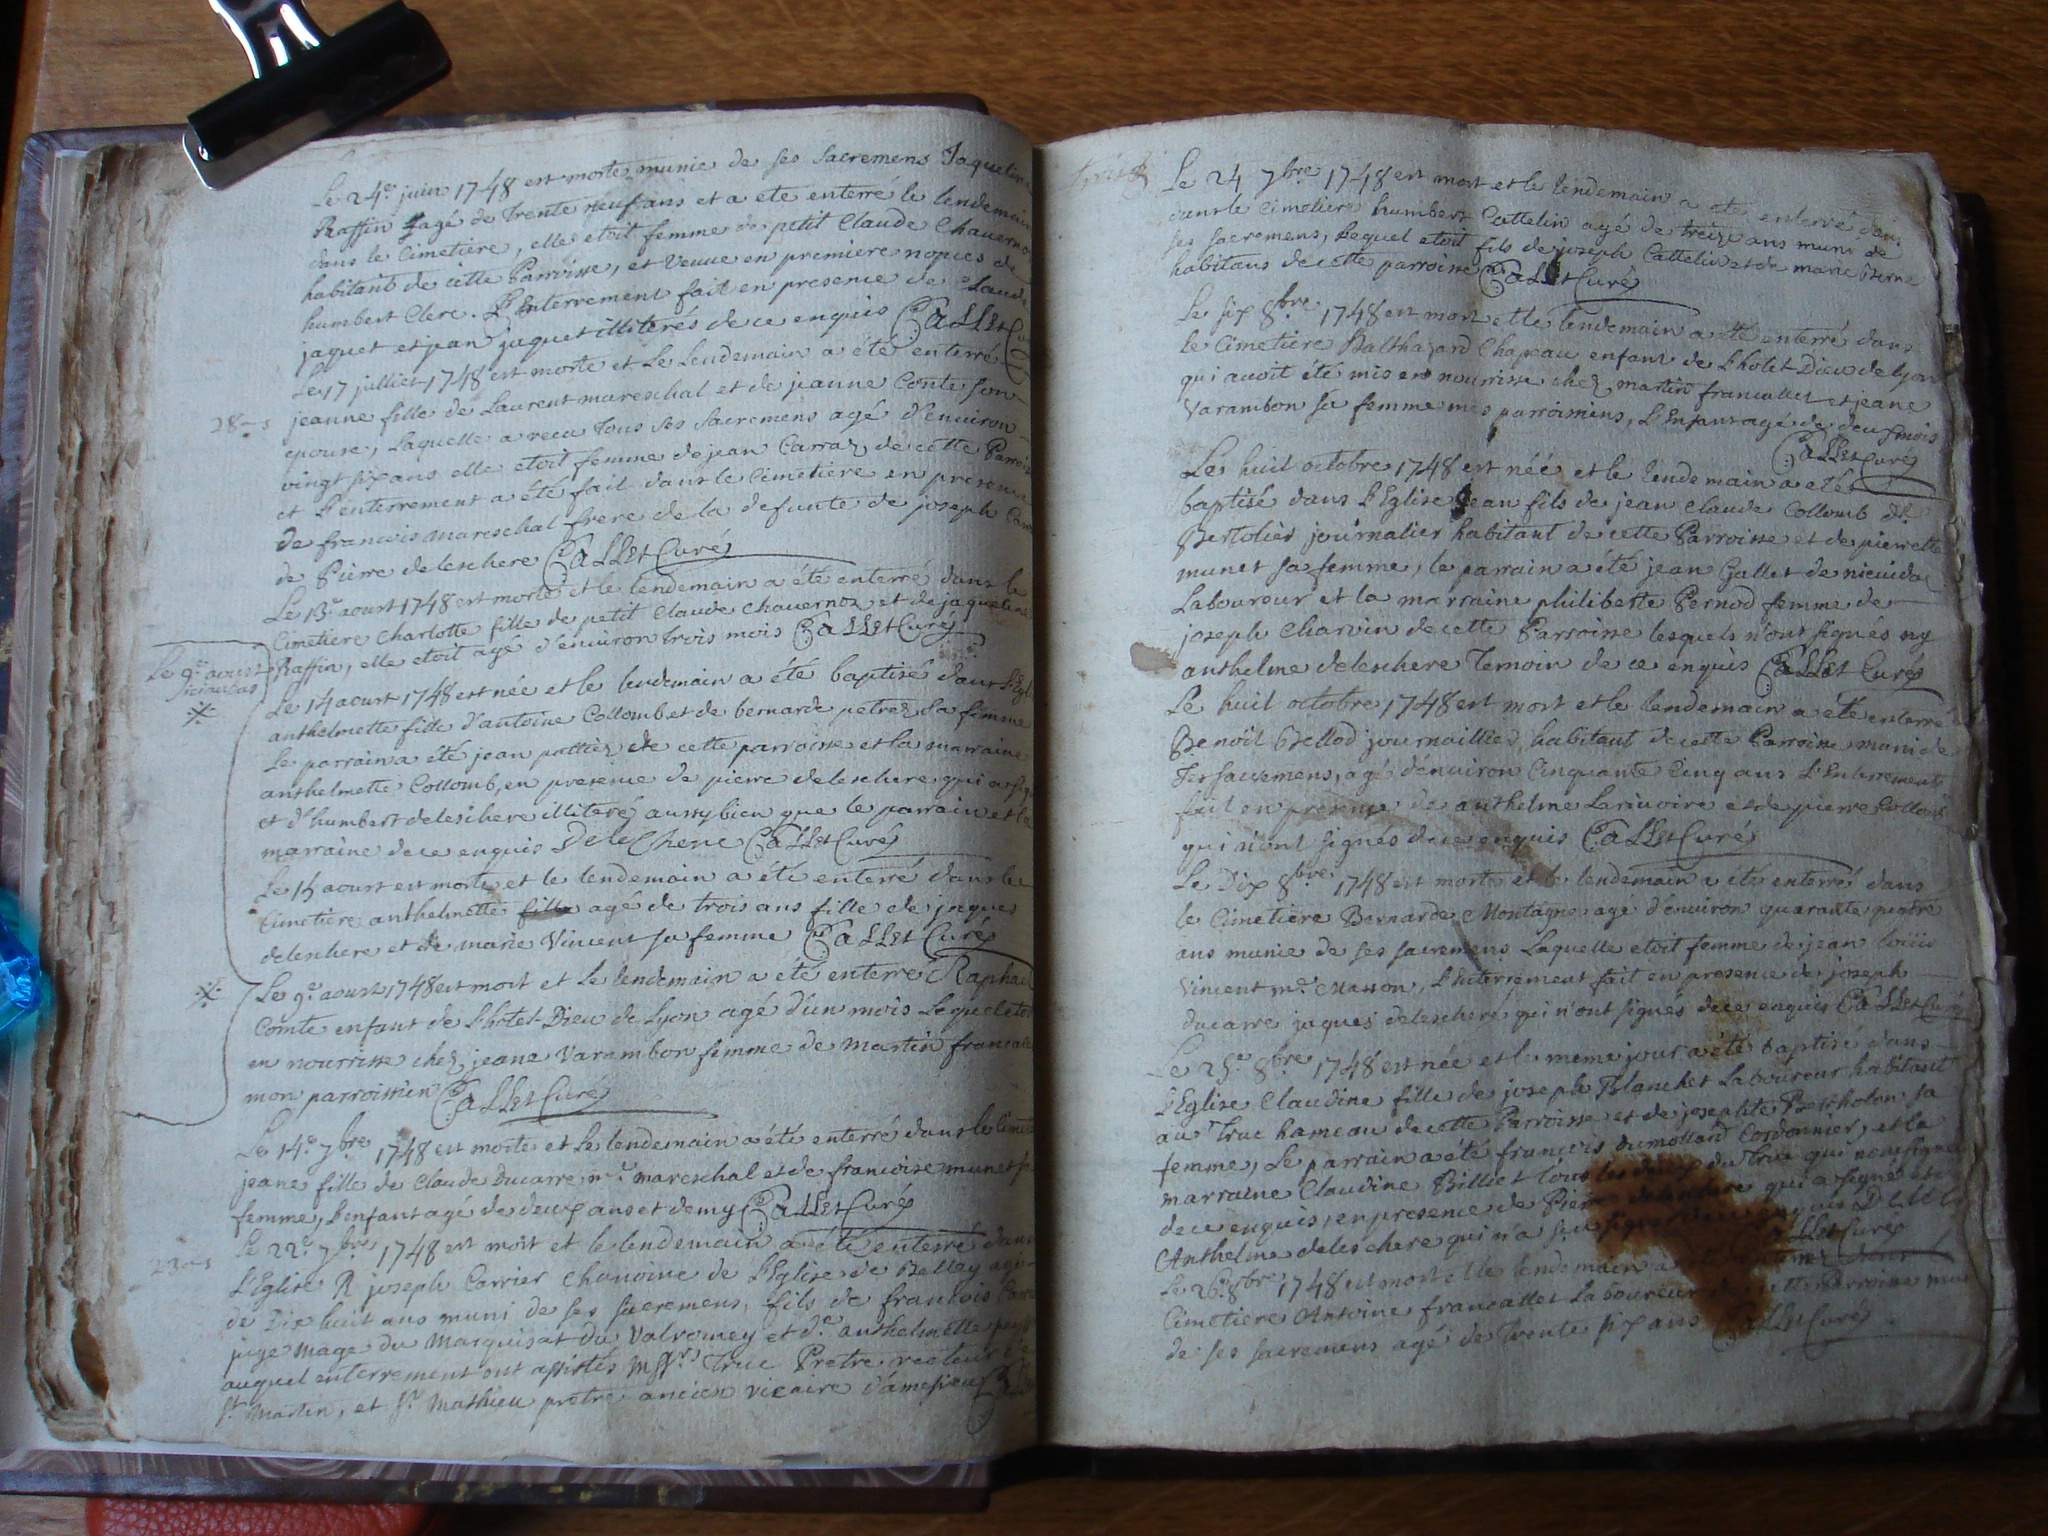 Le 24e juin 1748 est morte munie de ses sacremens Jaqueline
Raffin agé de trente neuf ans et a ete enterré le lendemain
dans le Cimetiere, elle etoit femme de petit Claude Chavernoz
habitant de cette Parroisse, et veuve en premiere nopces de
humbert Clerc. L'Enterrement fait en presence de Claude
jaquet et jean jaquet illiterés de ce enquis CaLLet Curé
Le 17 julliet 1748 est morte et Le Lendemain a été enterré
jeanne fille de Laurent mareschal et de jeanne Conte son
28-s
epouse, Laquelle a recu tous ses sacremens agé d'environ
vingt six ans elle etoit femme de jean Carraz de cette Parroisse
et L'enterrement a été fait dans le Cimetiere en presence
de francois mareschal frere de la defunte de joseph
de Pierre deleschere CaLLet Curé
Le 13e aoust 1748 est morte et le lendemain a été enterré dans le
Cimetiere Charlotte fille de petit Claude Chavernoz et de jaqueline
Raffin, elle etoit agé d'environ trois mois CaLLet Curé
Le 9e aoust
Le 14 aoust 1748 est née et le lendemain a été baptisé dans L'Egl
anthelmette fille d'antoine Collomb et de bernarde petrez sa femme
Le parrain a été jean pattiez de cette parroisse et la marraine
anthelmette Collomb, en presence de pierre deleschere qui a sig
et d'humbert deleschere illiteré aussy bien que le parrain et la
marraine de ce enquis DeleChere CaLLet Curé
Le 15 aoust est morte et le lendemain a été enterré dans le
Cimetiere anthelmette fille agé de trois ans fille de jaques
deleschere et de marie Vincent sa femme CaLLet Curé
Le 9e aoust 1748 est mort et le lendemain a été enterré Raphael
Comte enfant de L'hotel-Dieu de Lyon agé d'un mois Lequel etoit
en nourrisse chez jeane Varambon femme de Martin francallet
mon parroissien CaLLet Curé
Le 14e 7bre 1748 est morte et le lendemain a été enterré dans le Cimet
jeane fille de Claude Ducarre me mareschal et de francoise munet sa
femme, L'enfant agé de deux ans et demy CaLLet Curé
Le 22e 7bre 1748 est mort et le lendemain a été enterré dans
23-s
L'Eglise R joseph Carrier Chanoine de L'Eglise de Belley agé
de Dix huit ans muni de ses sacremens, fils de francois Carrier
juge mage du Marquisat du Valromey et de anthelmette
auquel enterrement ont assistés Mssrs Truc Pretre recteur de
St Martin, et Sr Mathieu pretre ancien vicaire d'amesieu
Le 24 7bre 1748 est mort et le lendemain a eté enterré dans
dans le Cimetiere humbert Cattelin agé de treize ans muni de
ses sacremens, Lequel etoit fils de joseph Cattelin et de marie
habitans de cette parroisse CaLLet Curé
Le six 8bre 1748 est mort et le lendemain a été enterré dans
le Cimetiere Balthazard Chapeau enfant de L'hotel-Dieu de Lyon
qui avoit été mis en nourrisse chez martin francallet et jeane
Varambon sa femme mes parroissiens, L'Enfant agé de deux mois
CaLLet Curé
Le huit octobre 1748 est néé et le lendemain a eté
baptisé dans L'Eglise jean fils de jean Claude Collomb dt
Bertolier journalier habitant de cette Parroisse et de pierrette
munet sa femme, le parrain a été jean Gallet de
Laboureur et la marraine philiberte Pernod femme de
joseph Charvin de cette Parroisse lesquels n'ont signés ny
anthelme deleschere Temoin de ce enquis CaLLet Curé
Le huit octobre 1748 est mort et le lendemain a été enterré
Benoit Bellod journaillier habitant de cette Parroisse muni de
ses sacremens, agé d'environ Cinquante Cinq ans L'Enterrement
fait en presence de anthelme Larivoire et de pierre Collomb
qui n'ont signés de ce enquis CaLLet Curé
Le Dix 8bre 1748 est morte et le lendemain a été enterré dans
le Cimetiere Bernarde Montagne agé d'environ quarante quatre
ans munie de ses sacremens Laquelle etoit femme de jean Loüis
Vincent me Masson, L'Enterrement fait en presence de joseph
ducarre jaques deleschere qui n'ont signés de ce enquis CaLLet Curé
Le 25e 8bre 1748 est née et le meme jour a été baptisé dans
L'Eglise Claudine fille de joseph Blanchet Laboureur habitant
au Truc hameau de cette Parroisse et de josephte Bertholon sa
femme, Le parrain a été francois dumollard Cordonnier, et la
marraine Claudine Billiet tous les deux du Truc qui n'ont signé
de ce enquis, en presence de Pierre deleschere qui a signé et
Anthelme deleschere qui n'a
CaLLet Curé
Le 26e 8bre 1748 est mort et le lendemain a été enterré dans le
Cimetiere Antoine francallet Laboureur de cette Parroisse muni
de ses sacremens agé de Trente six ans CaLLet Curé